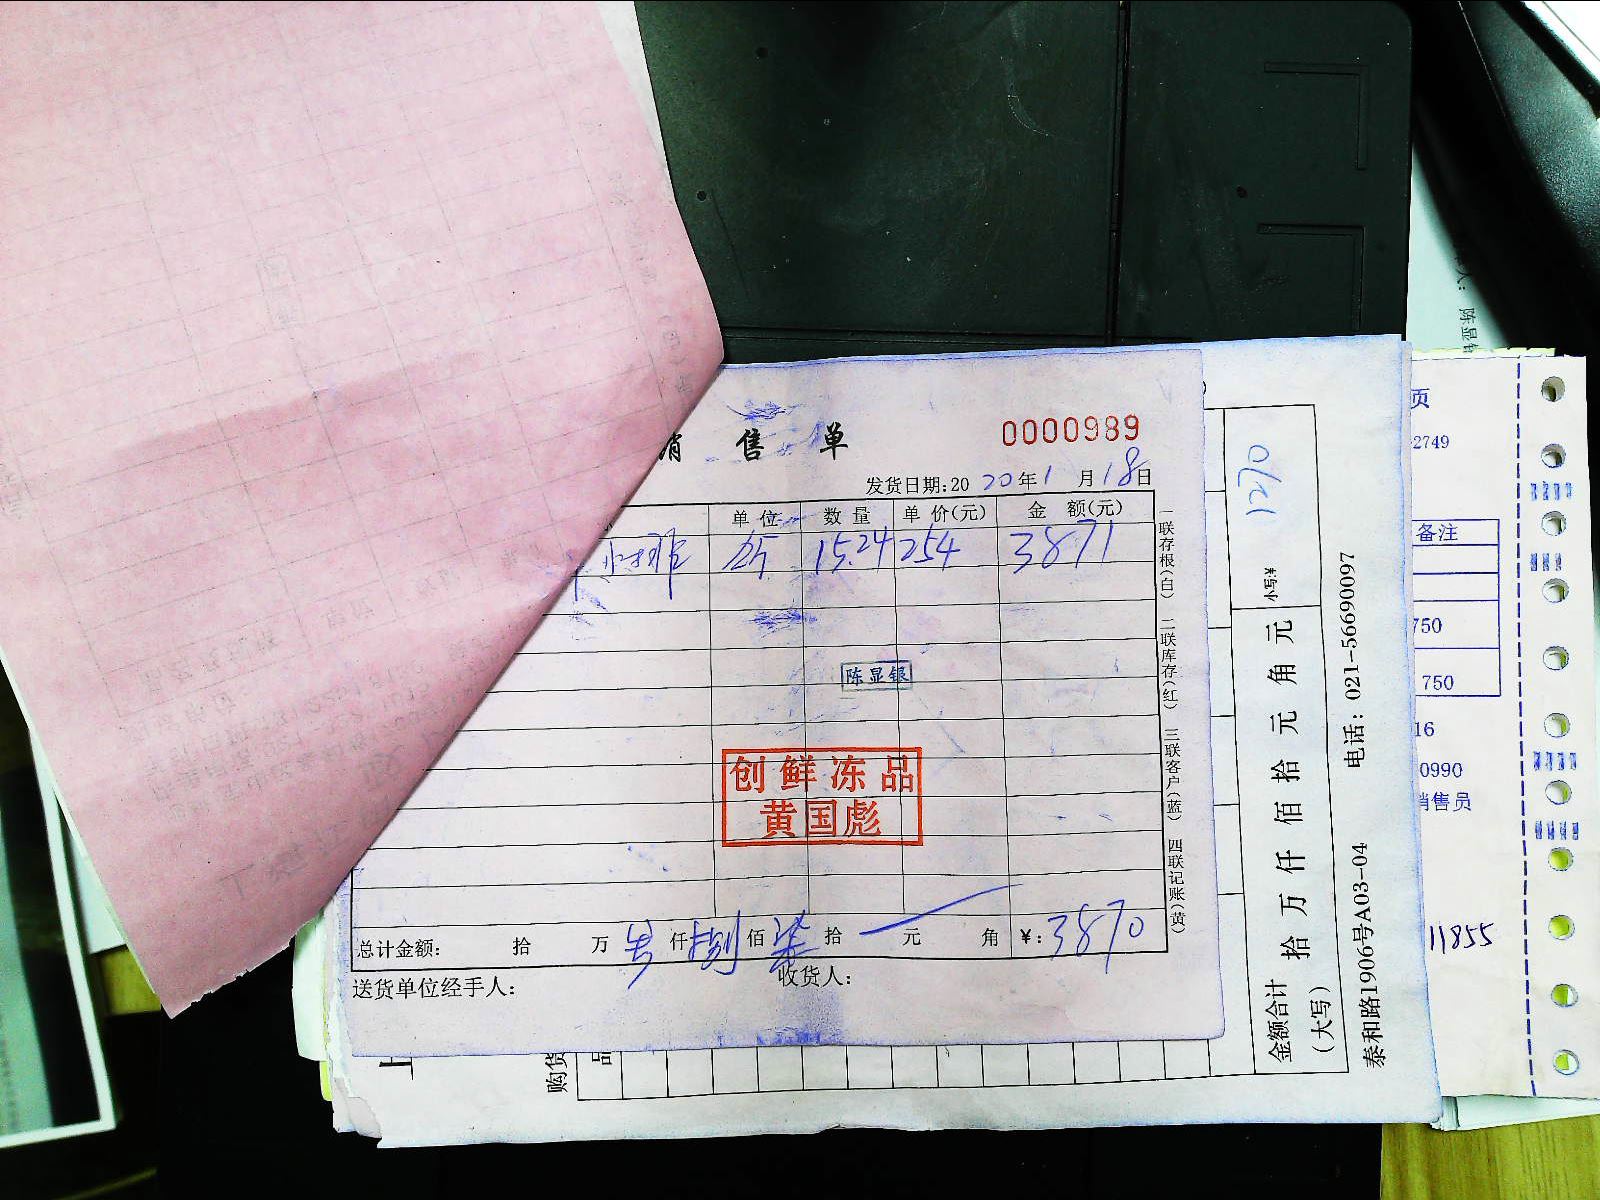 销 售 单
0000989
发货日期:20 20 年 1 月 18 日
单 位 数 量 单 价(元) 金 额(元)
小排 斤 15.24 254 3871
陈显银
创鲜冻品
黄国彪
总计金额: 拾 万 叁 仟 捌 佰 柒 拾 元 角 ¥: 3870
送货单位经手人: 收货人:
一联存根(白) 二联库存(红) 三联客户(蓝) 四联记账(黄)
1270
小写:¥
金额合计 拾 万 仟 佰 拾 元 角 元
(大写)
泰和路1906号A03-04 电话: 021-56690097
购货
品
页
-2749
备注
750
750
16
0990
销售员
11855
人: 陈显